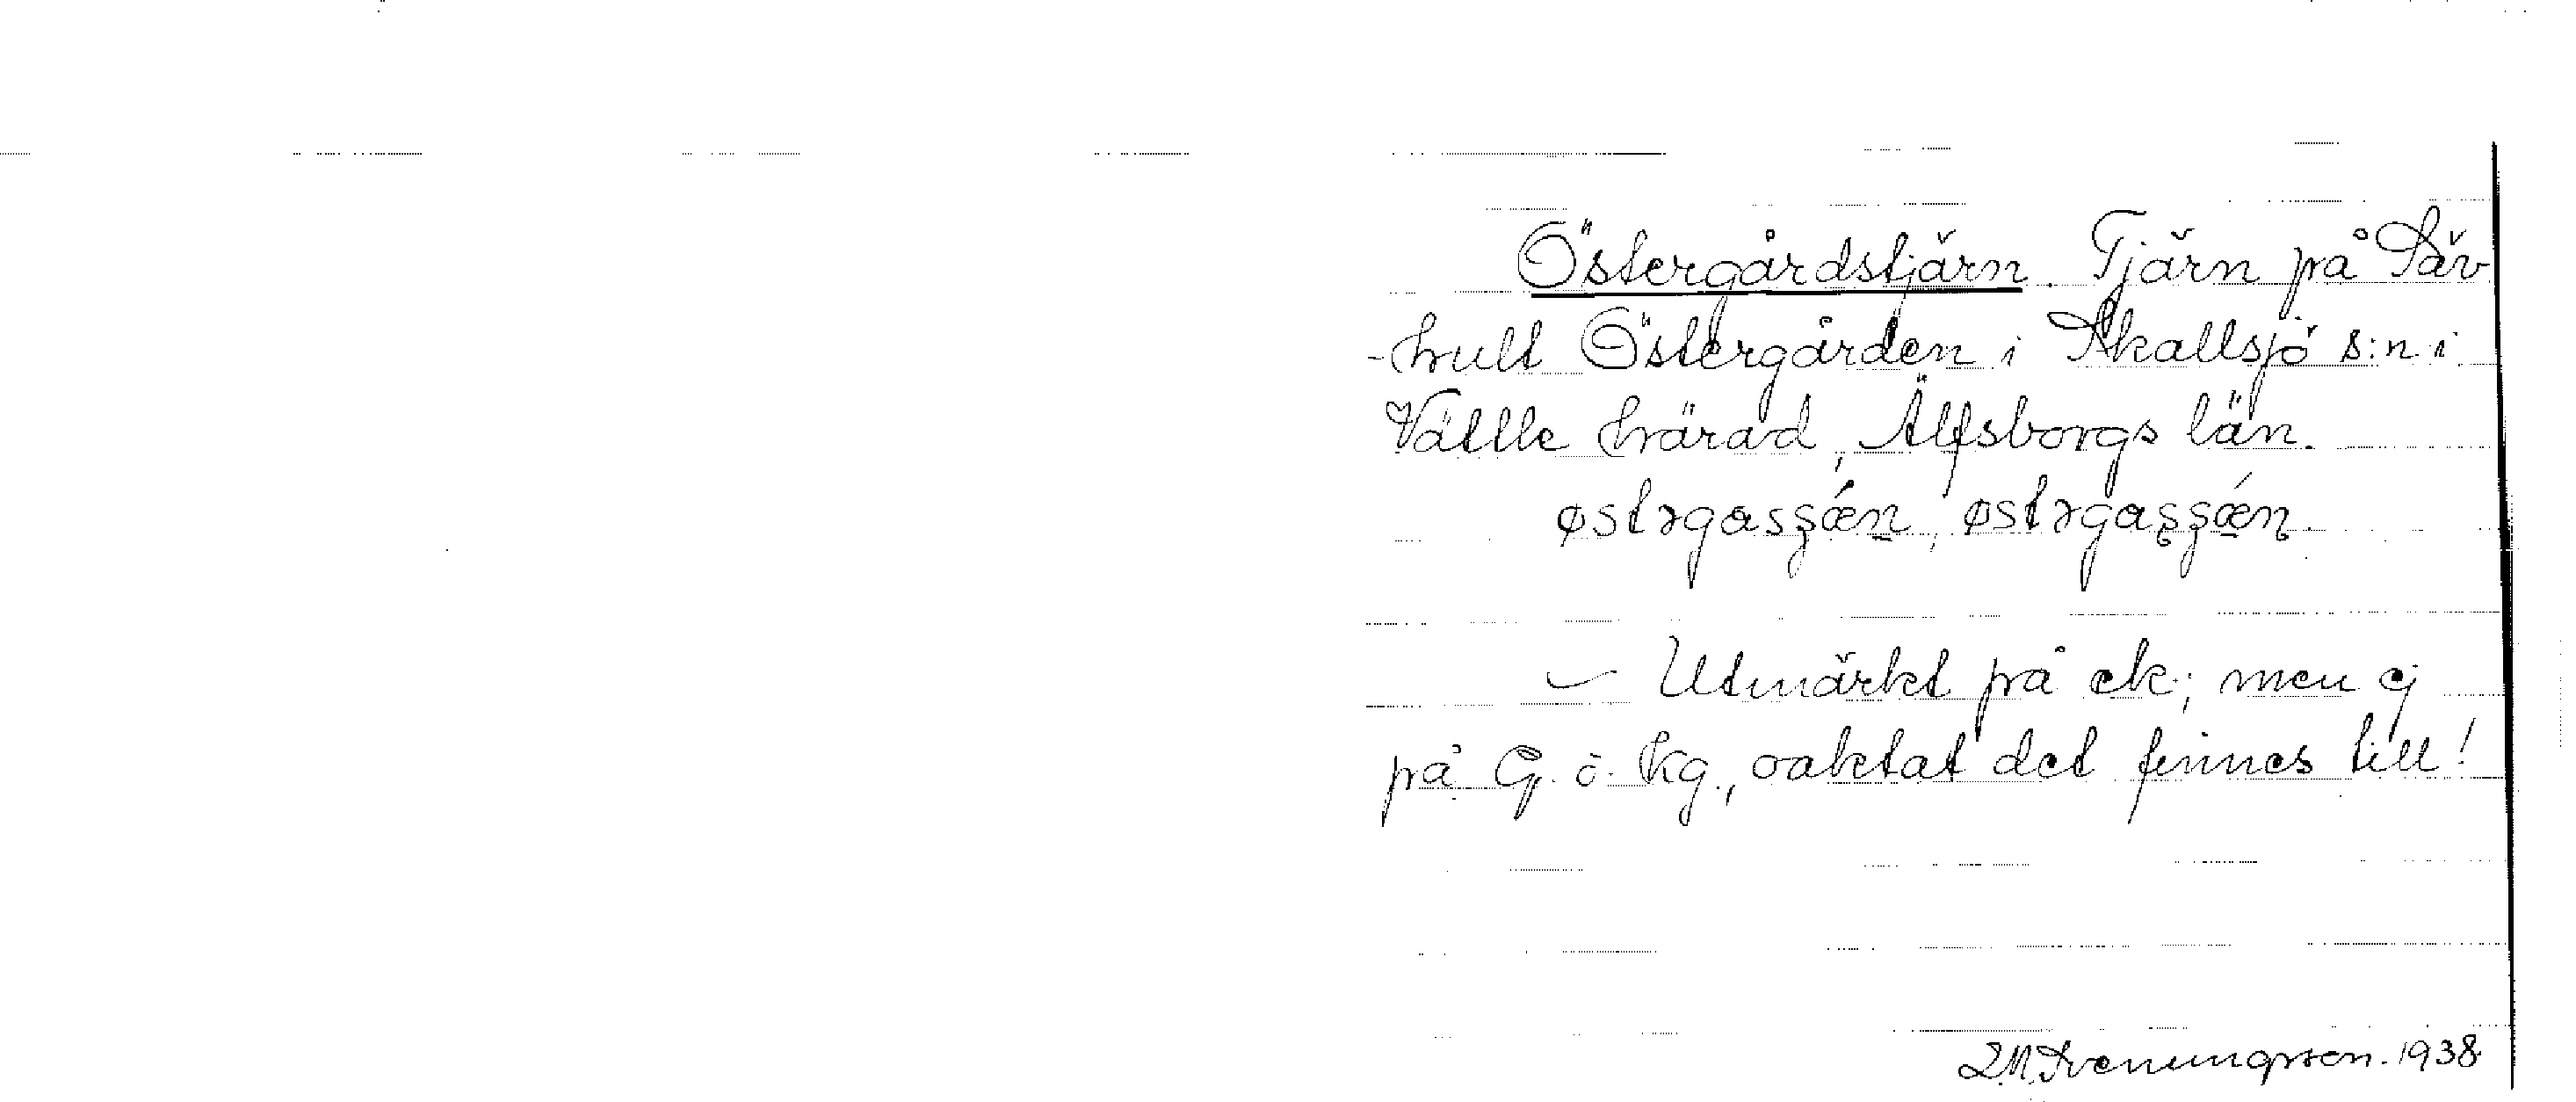 Östergårdstjärn. Tjärn på Säv-
-hult Östergården i Skallsjö s:n i
Vättle härad, Älfsborgs län.
østrgasʂǽn, østrgaʂʂǽn.
– Utmärkt på ek.; men ej
på G. o. Kg., oaktat det finnes till!
1938